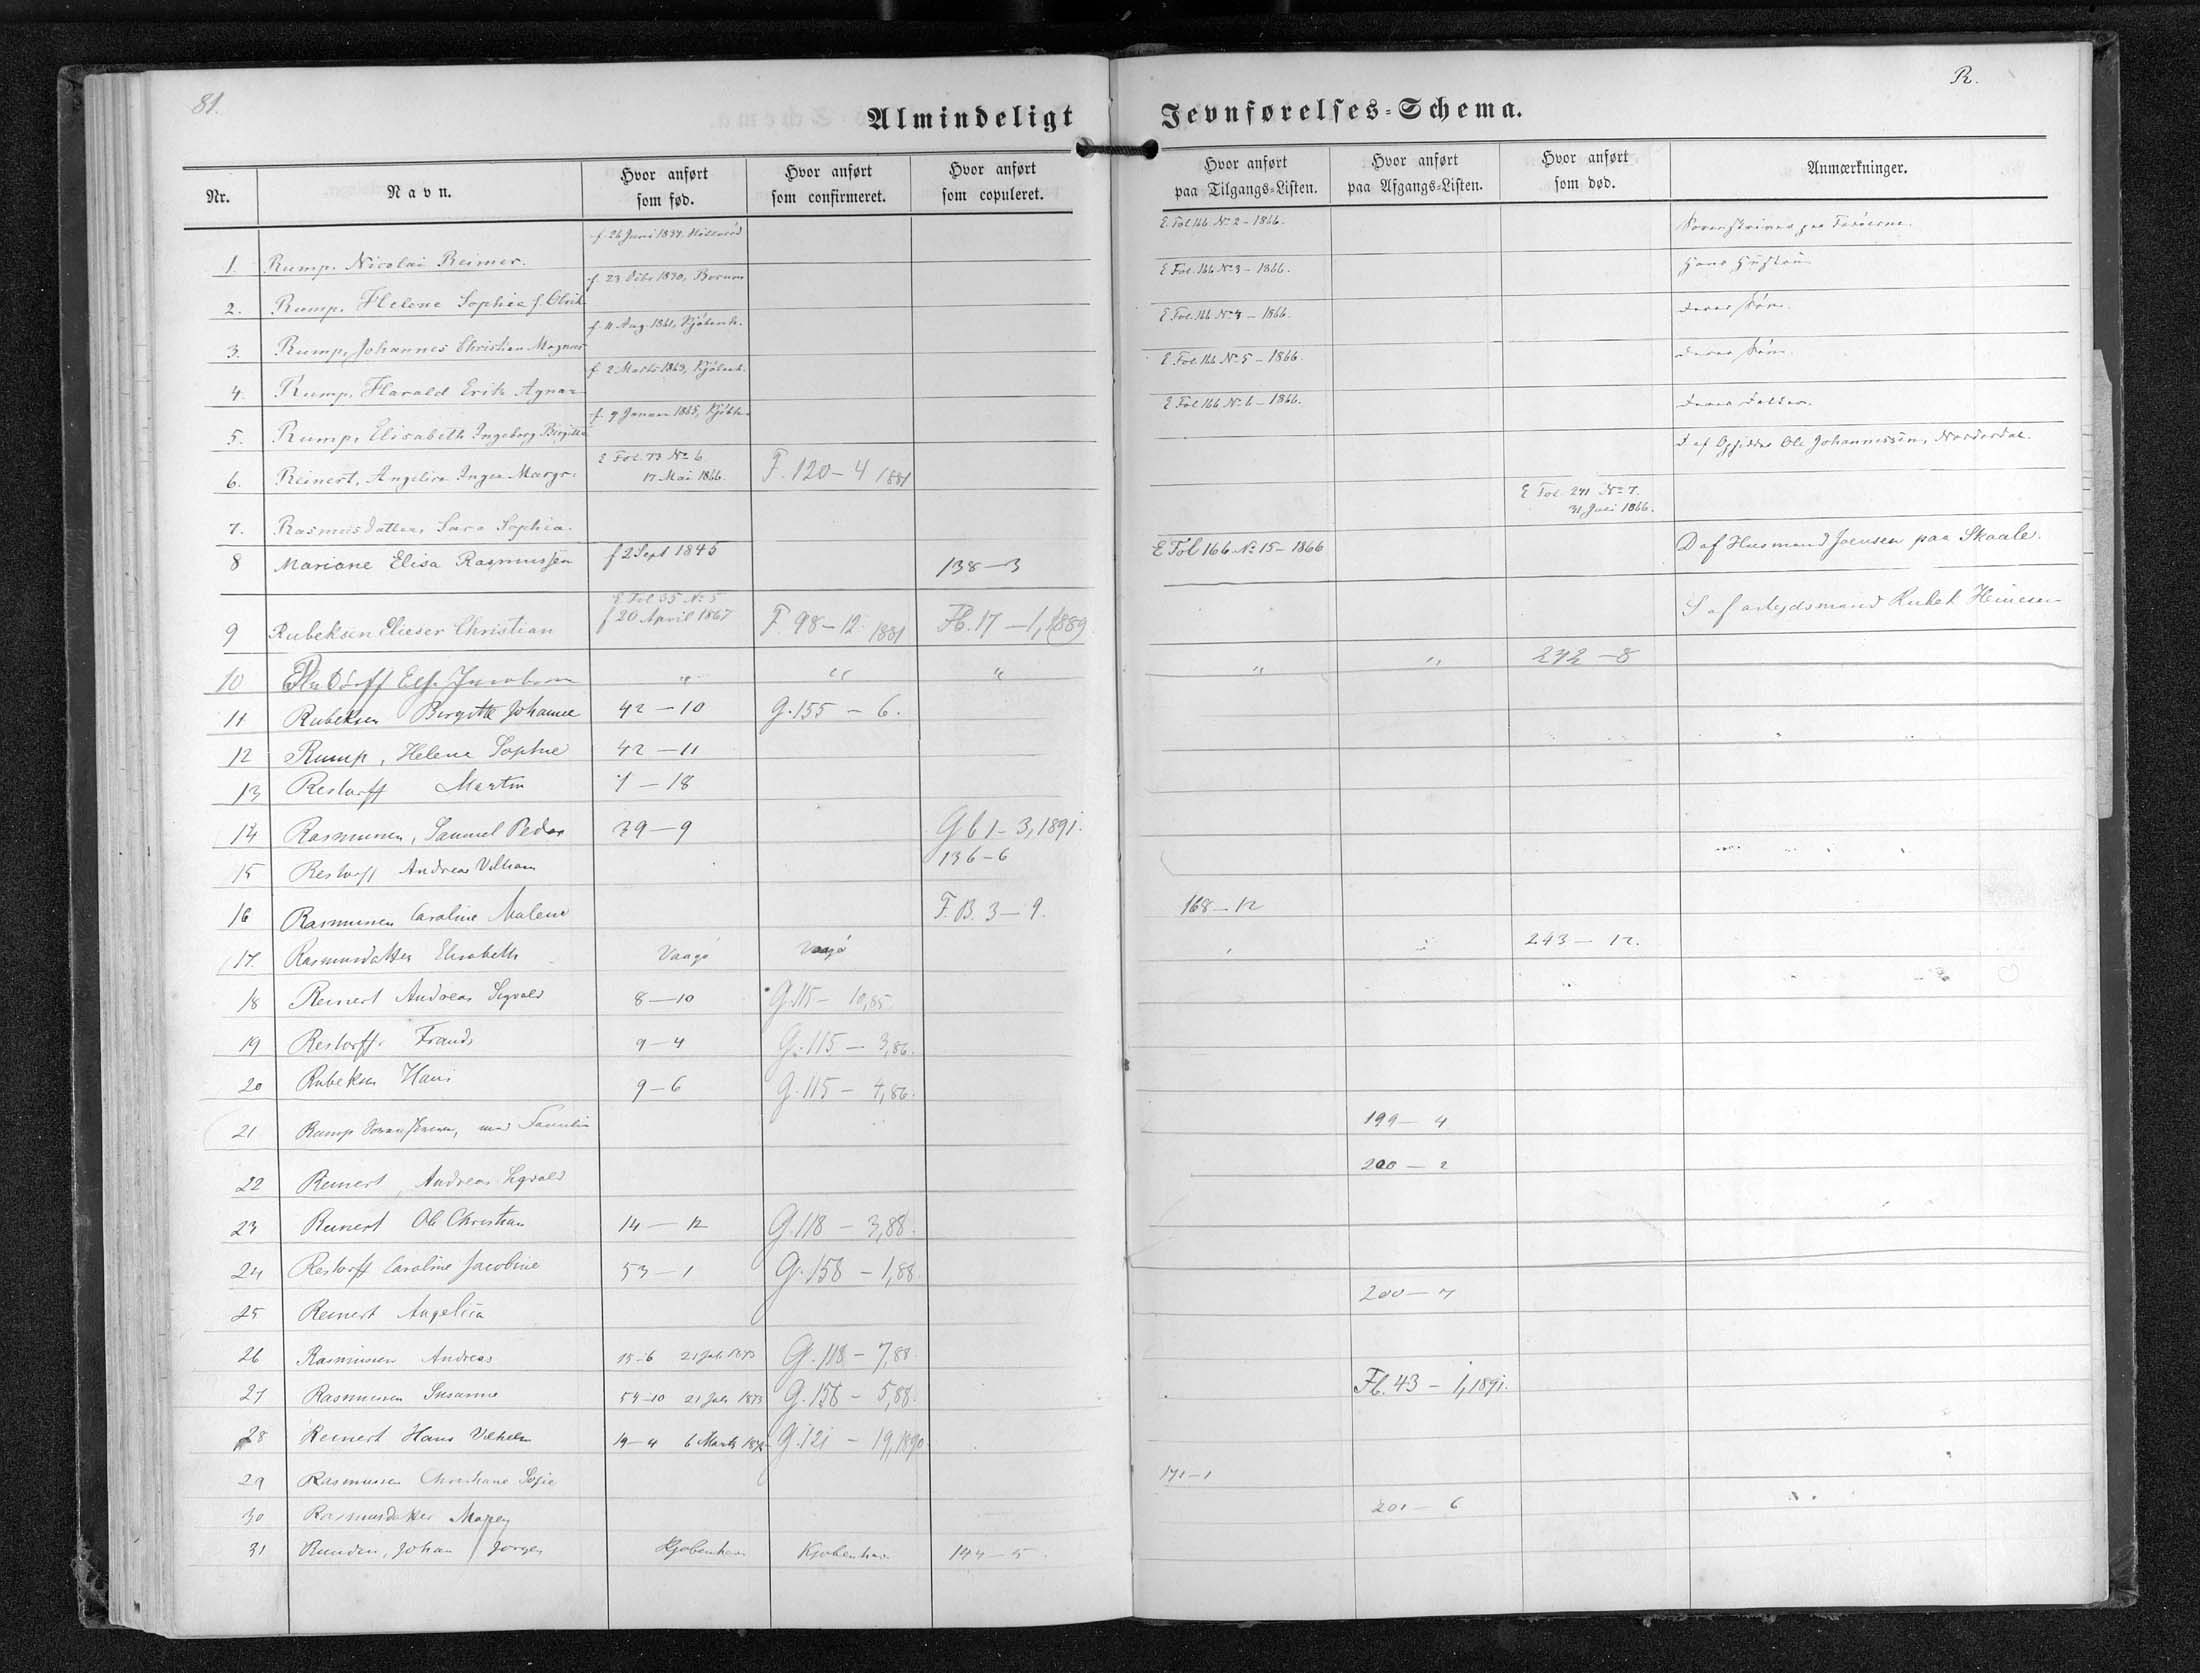 81.
R.
Almindeligt Jevnførelses=Schema.
Nr. Navn. Hvor anført som fød. Hvor anført som confirmeret. Hvor anført som copuleret. Hvor anført paa Tilgangs=Listen. Hvor anført paa Afgangs=Listen. Hvor anført som død. Anmærkninger.
1. Rump, Nicolai Reimer. f. 26 Juni 1834. E. Fol. 166 No 2 - 1866. Sorenskriver paa Færøerne.
2. Rump, Helene Sophie f. 23 1830, E Fol. 166 No 3 - 1866. Hans Hustru
3. Rump, Johannes Christian Magnus f. 11 Aug. 1861, Kjöbenh. E Fol. 166 No 4 - 1866. deres Søn.
4. Rump, Harald Erik Agnar f. 2 Marts 1863, Kjöbenh. E Fol. 166 No 5 - 1866. deres Søn.
5. Rump, Elisabeth Ingeborg Birgitte f. 9 Januar 1865, Kjöbh. E Fol 166 No 6 - 1866. deres Datter.
6. Reinert, Angelica Inger Margr. E Fol. 73 No 6 17 Mai 1866. F. 120 - 4 1881 D af Ole Johannessen, Norderdal.
7. Rasmusdatter, Sara Sophia. E Fol. 241 No 7. 31 Juli 1866.
8 Mariane Elisa Rasmussen f 2 Sept 1845 138 - 3 E Fol 166 No 15 - 1866 D af Husmand Joensen paa Skaale.
9 Rubeksen Elieser Christian E Fol 35 No 5 f 20 April 1867 F. 98 - 12 1881 Fb. 17 - 1, 1889 S af arbejdsmand Rubek Heinesen
10 " " " " " 242 - 8
11 Rubeksen Birgitte Johanne 42 - 10 G. 155 - 6.
12 Rump, Helene Sophie 42 - 11
13 Restorff Martin 7 - 18
14 Rasmussen, Samuel Peder 39 - 9 Gb 1 - 3, 1891.
15 Restorff Andreas Vilhelm 136 - 6
16 Rasmussen Caroline Malene F. B. 3 - 9. 168 - 12
17. Rasmusdatter Elisabeth Vaagø Vaagø 243 - 12.
18 Reinert Andreas Sigvald 8 - 10 G. 115 - 10, 85
19 Restorff Frands 9 - 4 G. 115 - 3, 86.
20 Rubeksen Hans 9 - 6 G. 115 - 4, 86.
21 Rump Sorenskriver, med Familie 199 - 4
22 Reinert, Andreas Sigvald 200 - 2
23 Reinert Ole Christian 14 - 12 G. 118 - 3, 88.
24 Restorff Caroline Jacobine 53 - 1 G. 158 - 1, 88.
25 Reinert Angelica 200 - 7
26 Rasmussen Andreas 15 - 6 21 Juli 1873 G. 118 - 7, 88.
27 Rasmussen Susanne 54 - 10 21 Juli 1873 G. 158 - 5, 88. Fb. 43 - 1, 1891.
28 Reinert Hans Vilhelm 19 - 4 6 Marts G. 121 - 19, 1890.
29 Rasmussen Christiane 171 - 1
30 Rasmusdatter 201 - 6
31 Johan Jørgen Kjøbenhavn Kjøbenhavn 144 - 5.